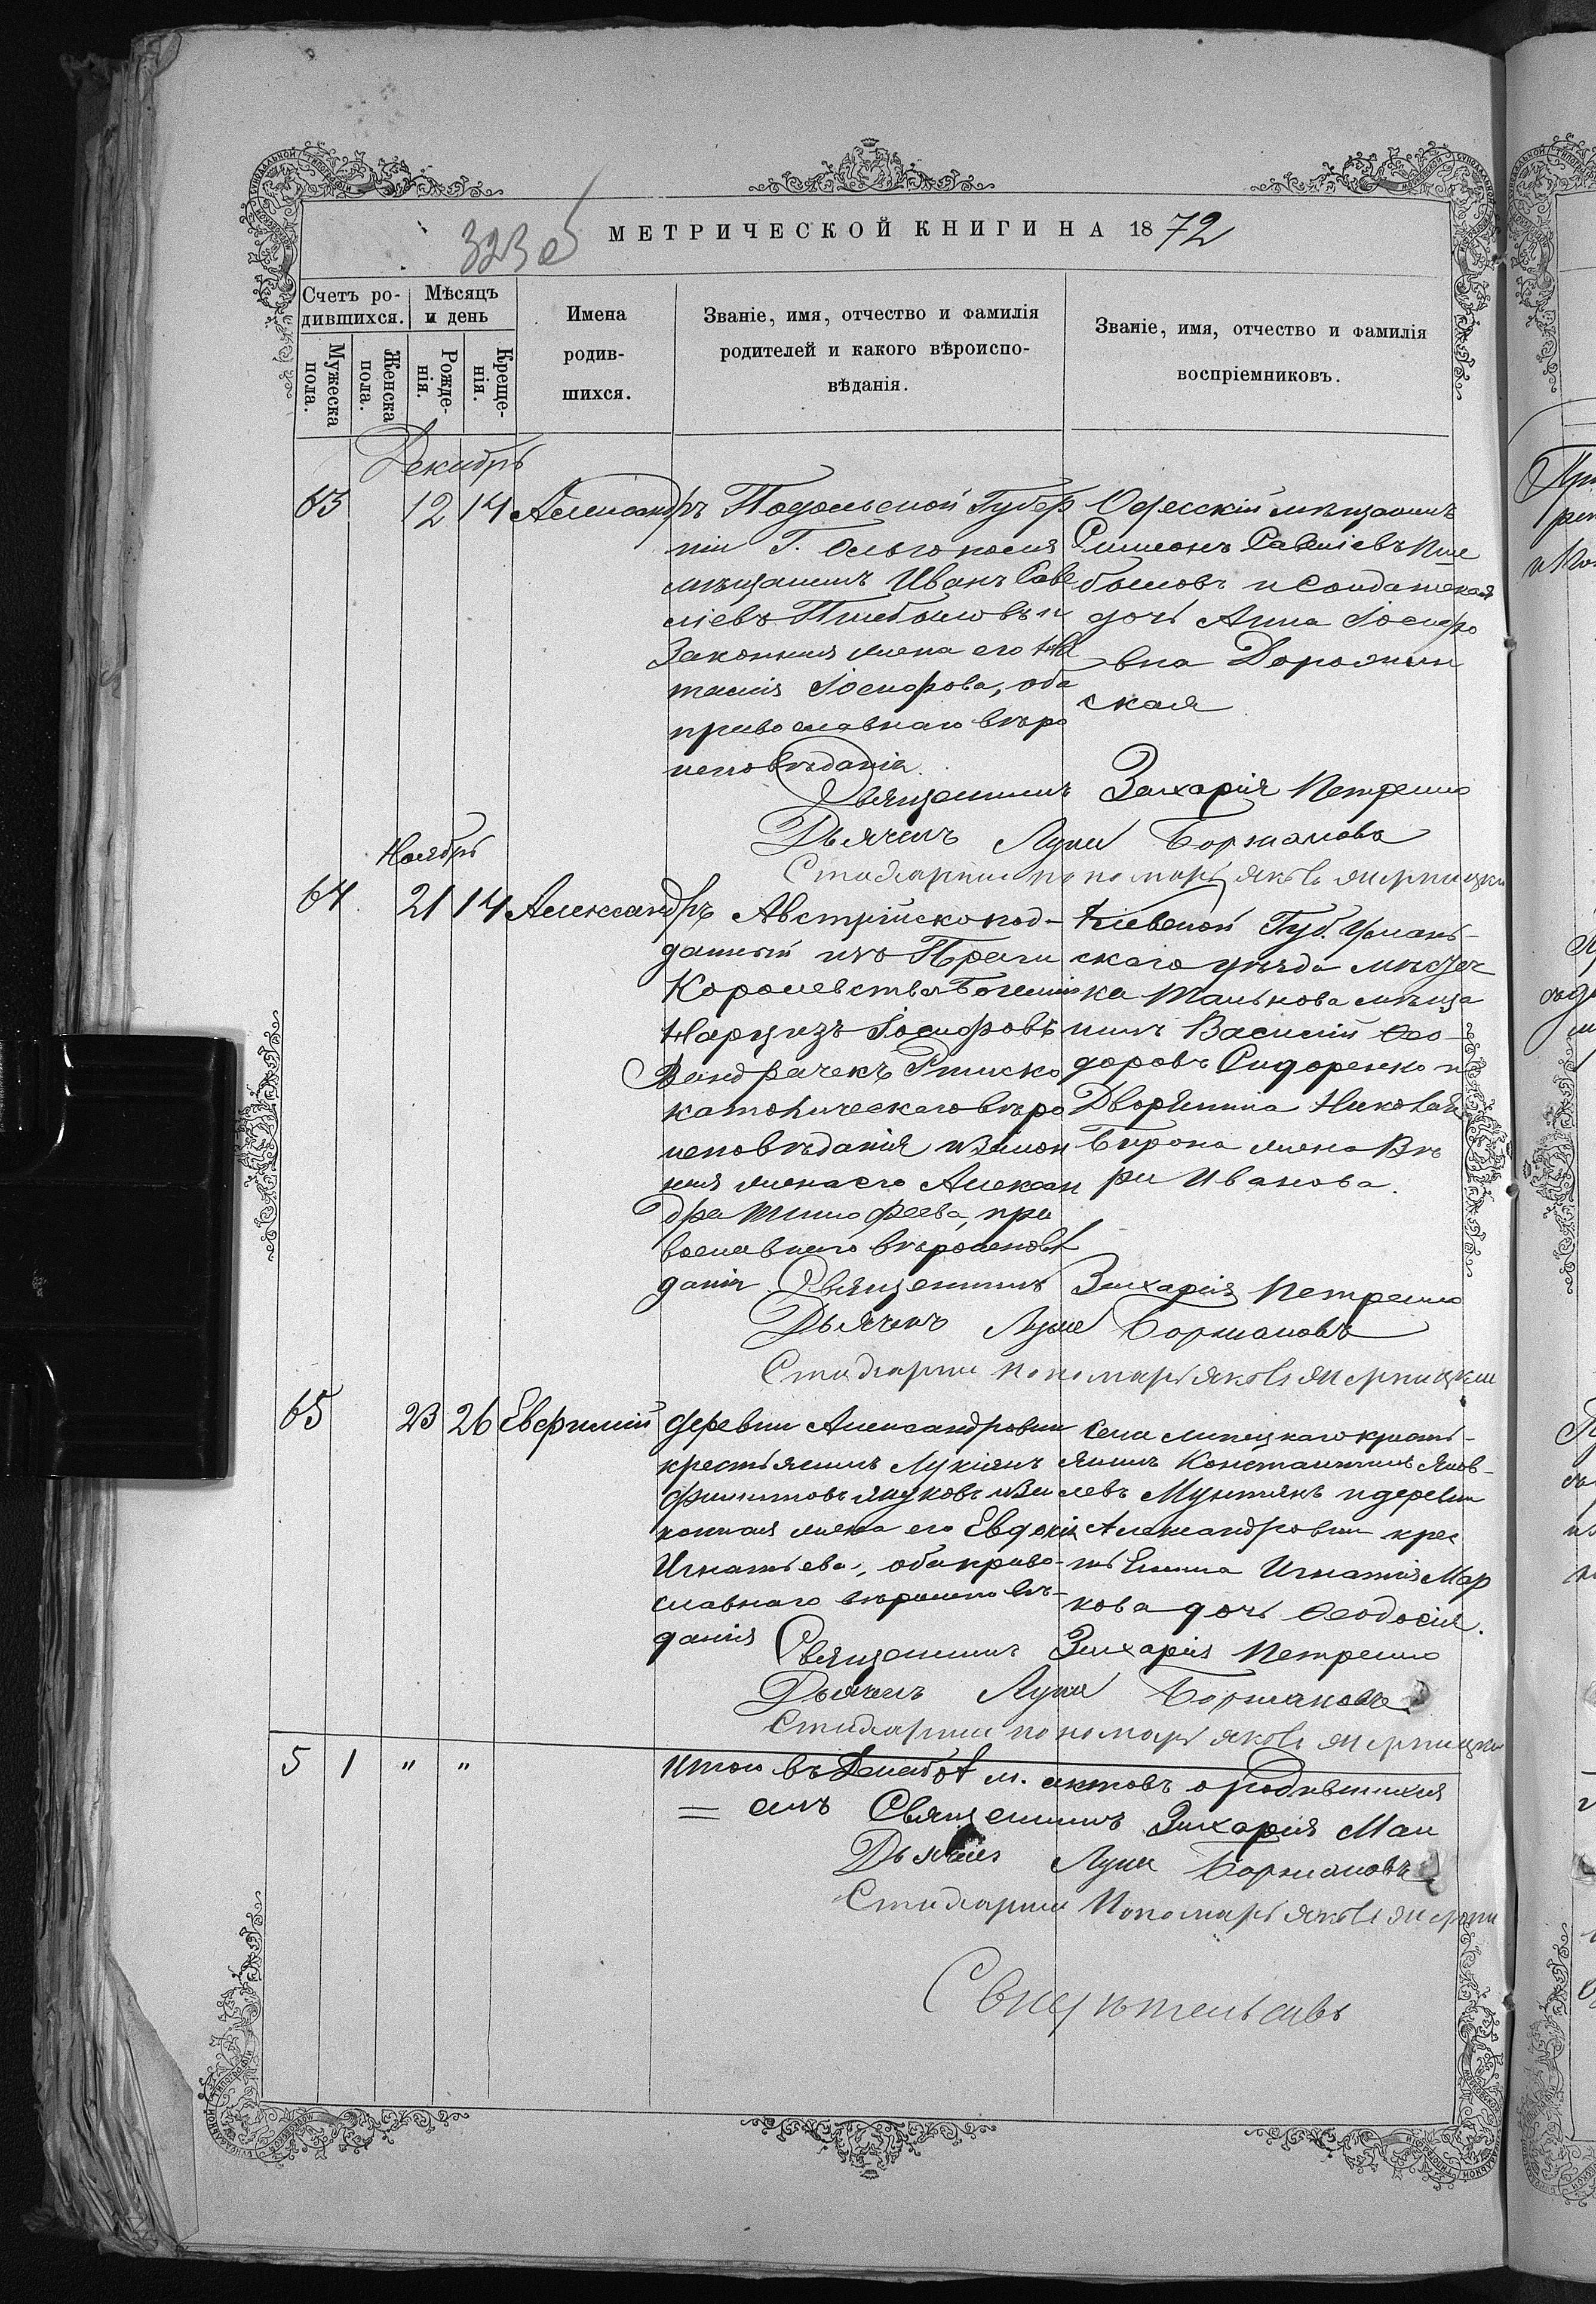 МЕТРИЧЕСКОЙ КНИГИ НА 1872
323 об
Счетъ ро-
дившихся.
Мѣсяцъ
и день
Имена
родив-
шихся.
Званіе, имя, отчество и фамилія
родителей и какого вѣроиспо-
вѣданія.
Званіе, имя, отчество и фамилія
воспріемниковъ.
Мужеска
пола.
Женска
пола.
Рожде-
нія.
Креще-
нія.
Декабрь
63 12 14 Александръ
Подольской Губер
ніи Г. Ольгополя
мѣщанинъ Иванъ Саве
ліевъ и
Законная жена его Ана
тасія Іосифова, оба
православнаго вѣро
исповѣданія.
Одесскій мѣщанинъ
Симеонъ Савеліевъ
и Солдатская
дочь Анна Іосифо
вна
ская
Священникъ Захарія Петренко
Дьячекъ Лука Боржаковъ
Стихарный пономарь Яковъ
Ноябрь
64. 21 14 Александръ
Австрійскопод-
данный изъ Праги
Королевства Богеміи
Нарцизъ Іосифовъ
Вондрачекъ Римско
католическаго вѣро
исповѣданія и Закон
ная жена его Алексан
дра Тимофеева, пра
вославнаго вѣроисповѣ
данія
Кіевской Губ. Уман-
скаго уѣзда мѣстеч
ка Тальнова мѣща
нинъ Василій Ѳео-
доровъ Сидоренко и
Дворянина Николая
Бирона жена Вѣ
ра Иванова.
Священникъ Захарія Петренко
Дьячекъ Лука Боржаковъ
Стихарный пономарь Яковъ
65 23 26 Евфимій
деревни Александровки
крестьянинъ Лукіянъ
Филиповъ Януковъ и За
конная жена его Евдокія
Игнатьева, оба право-
славнаго вѣроисповѣ-
данія
Села Липецкаго крестья-
янинъ Константинъ Яков-
левъ Мунтянъ и деревни
Александровки крес
тьянина Игнатія Мар
кова дочь Ѳеодосія.
Священникъ Захарія Петренко
Дьячекъ Лука Боржаковъ
Стихарный пономарь Яковъ
5 1 " "
Итого въ Декабрѣ м. актовъ о родившихся
= есть Священникъ Захарія
Дьячекъ Лука Боржаковъ
Стихарный Пономарь Яковъ